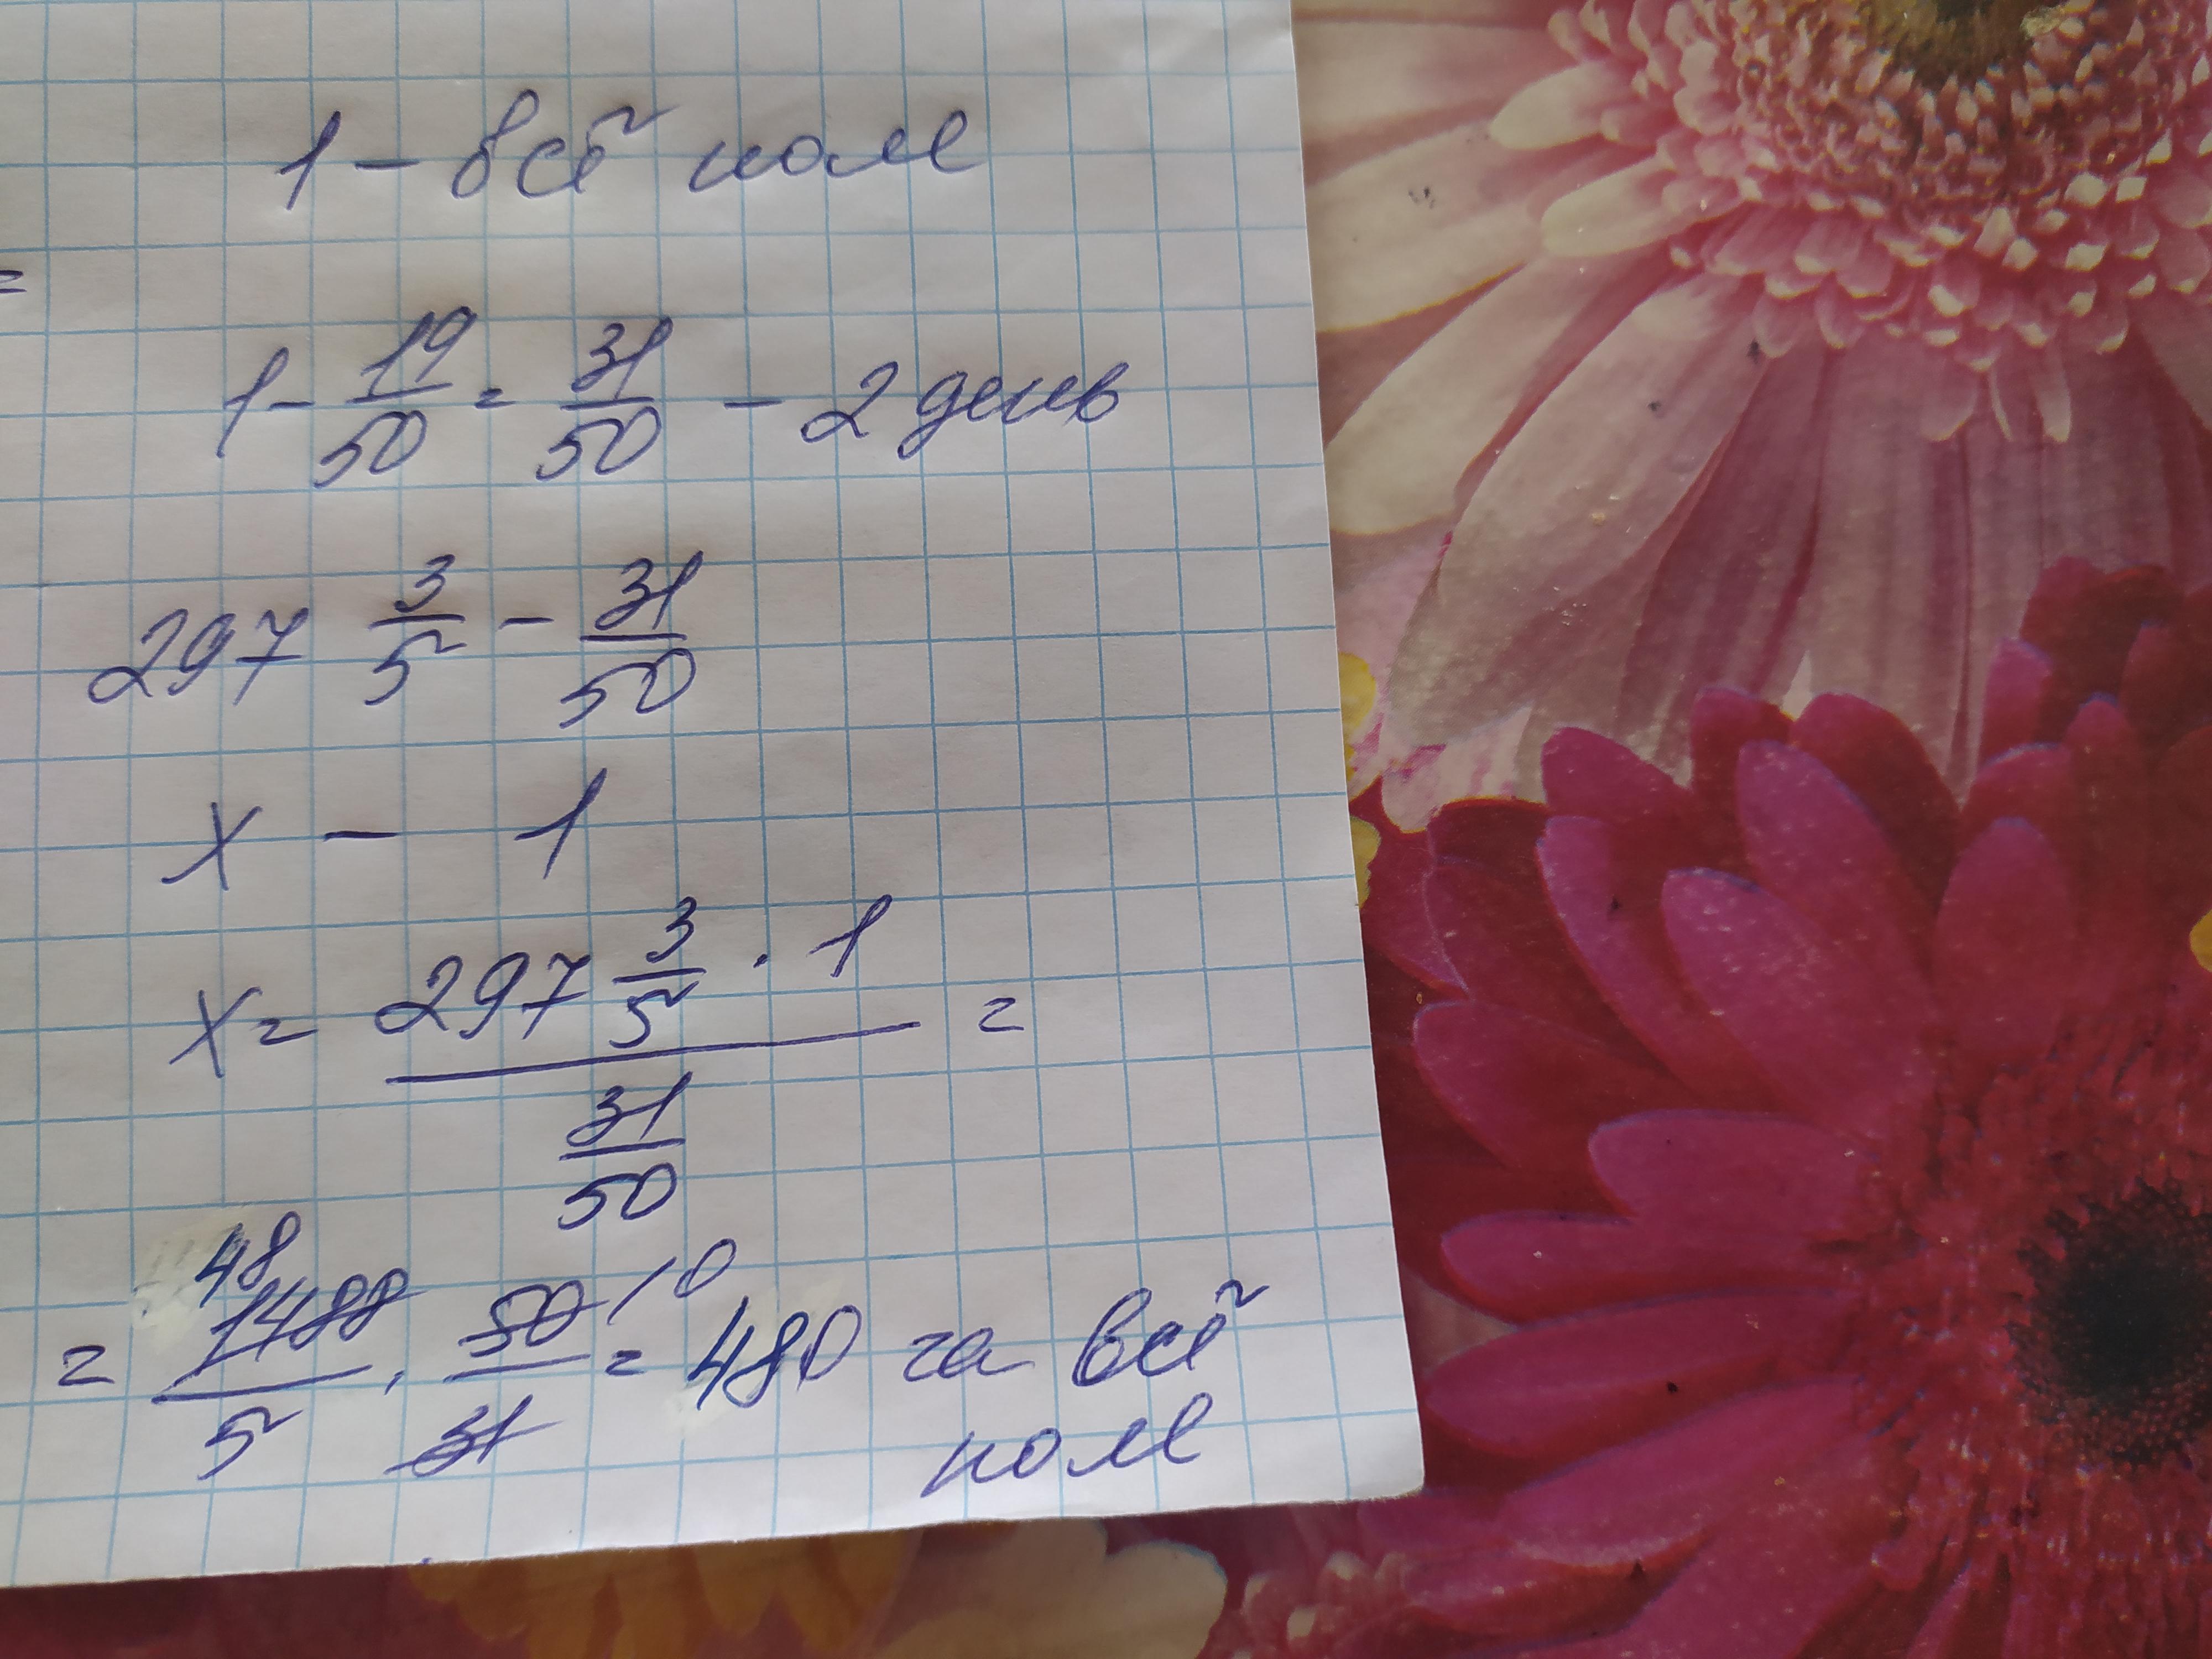 1 - всё поле
=
1 - 19/50 = 31/50 - 2 день
297 3/5 - 31/50
x - 1
x = (297 3/5 · 1)/(31/50) =
48 10
= 1488/5 · 50/31 = 480 га всё
поле